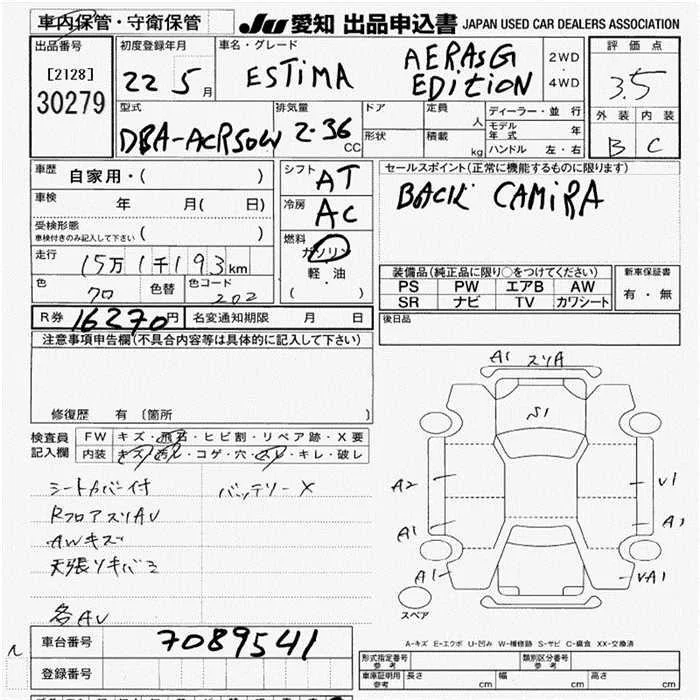 車内保管・守衛保管
JU 愛知 出品申込書 JAPAN USED CAR DEALERS ASSOCIATION
出品番号
[2128]
30279
初度登録年月
22 5月
車名・グレード
ESTIMA AERAS G EDITION
2WD
・
4WD
評価点
3.5
外装 内装
B C
型式
DBA-ACR50W
排気量
2.36 CC
ドア
形状
定員 人
積載 kg
ディーラー・並行
モデル年式 年
ハンドル 左・右
車歴 自家用・( )
車検 年 月( 日)
受検形態
車検付きのみ記入して下さい ( )
走行 15万1千193km
色 色替 色コード 202
シフト AT
冷房 AC
燃料
ガソリン
軽・油
( )
セールスポイント(正常に機能するものに限ります)
BACK CAMIRA
装備品(純正品に限り○をつけてください)
PS PW エアB AW
SR ナビ TV カワシート
新車保証書
有・無
R券 16270円 名変通知期限 月 日
後日品
注意事項申告欄(不具合内容等は具体的に記入して下さい)
修復歴 有〔箇所 〕
検査員記入欄
FW キズ・飛石・ヒビ割・リペア跡・X要
内装 キズ・汚レ・コゲ・穴・スレ・キレ・破レ
シートカバー付 バッテリーX
RフロアスリAU
AWキズ
各AU
A1 スリA
S1
A2
A1
A1
V1
スペア
A-キズ E-エクボ U-凹み W-補修跡 S-サビ C-腐食 XX-交換済
車台番号 7089541
登録番号
形式指定番号
参考
類別区分番号
参考
車庫証明用
参考
長さ cm 幅 cm 高さ cm